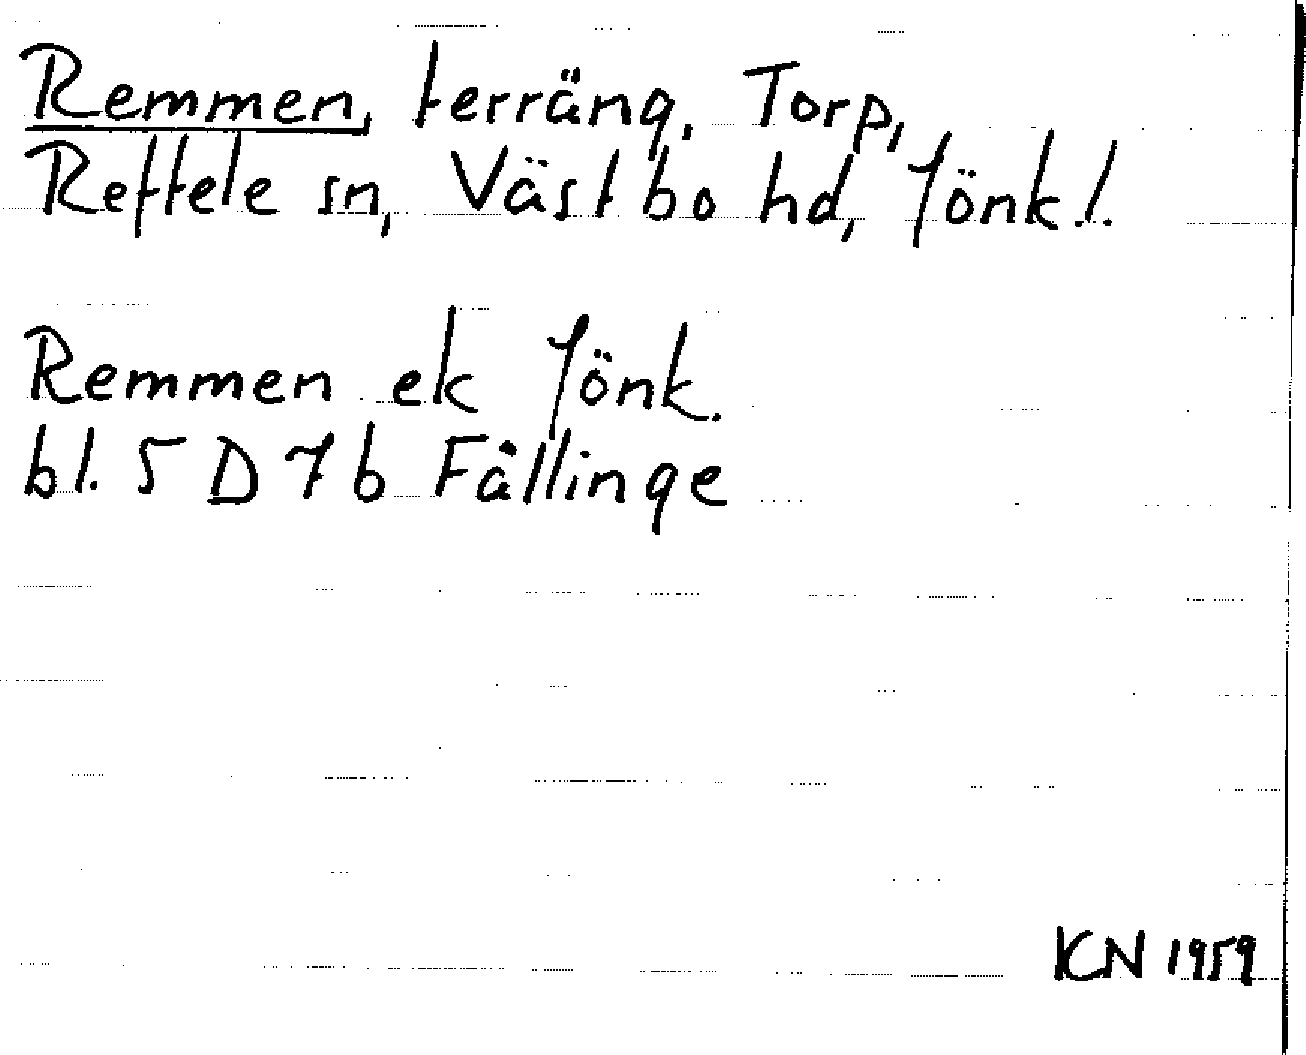 Remmen, terräng, Torp,
Reftele sn, Västbo hd, Jönk.l.
Remmen ek Jönk.
bl. 5 D 7 b Fållinge
KN 1959